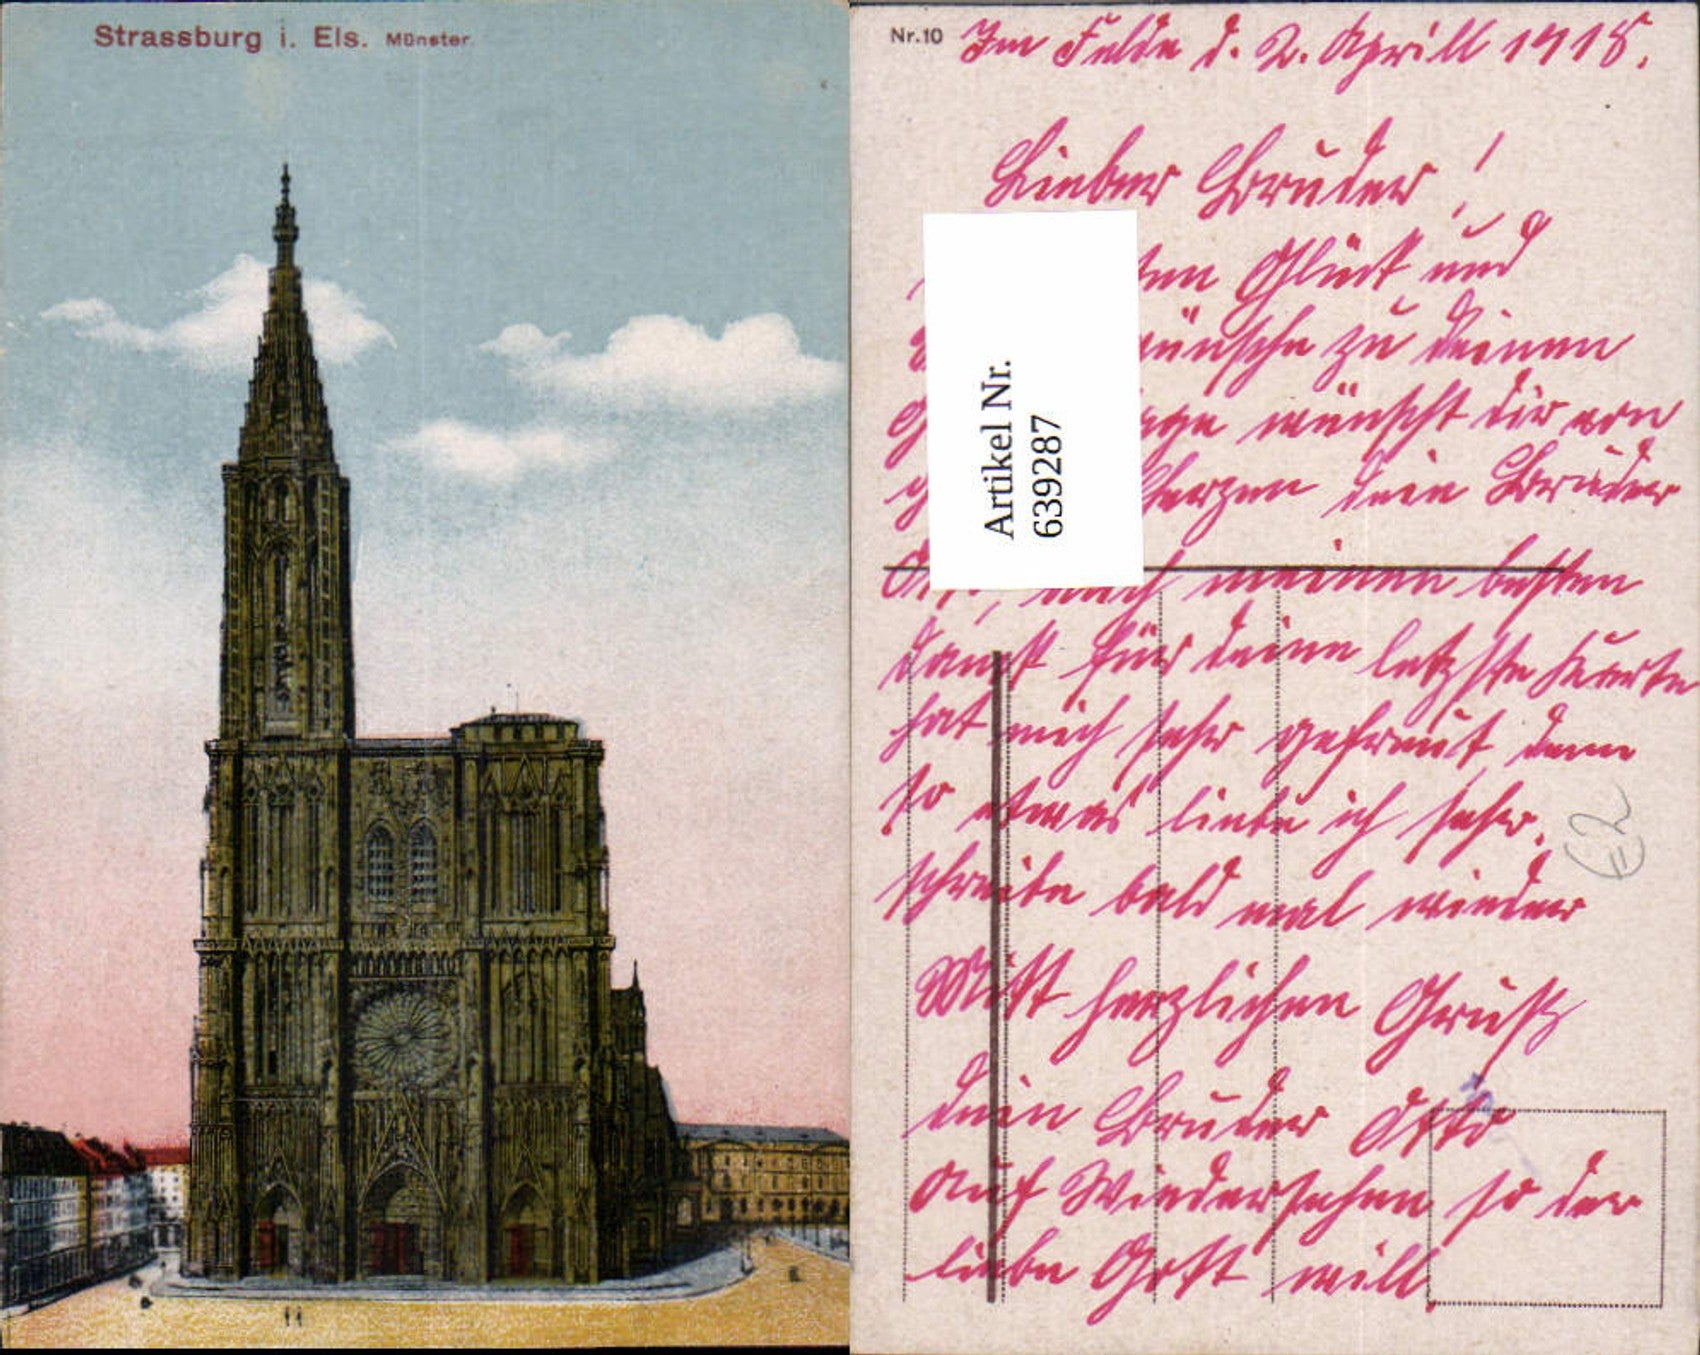 Strassburg i. Els. Münster.
Nr. 10
Im Felde d. 2. Aprill 1918.
Lieber Bruder!
Glück und
wünsche zu deinem
wünscht dir von
Herzen dein Bruder
Otto, auch meinen besten
dankt für deine letzte Karte
hat mich sehr gefreut, denn
so etwas liebe ich sehr.
schreibe bald mal wieder
Mitt herzlichen Gruß
dein Bruder Otto
Auf Wiedersehen so der
liebe Gott will.
Artikel Nr.
639287